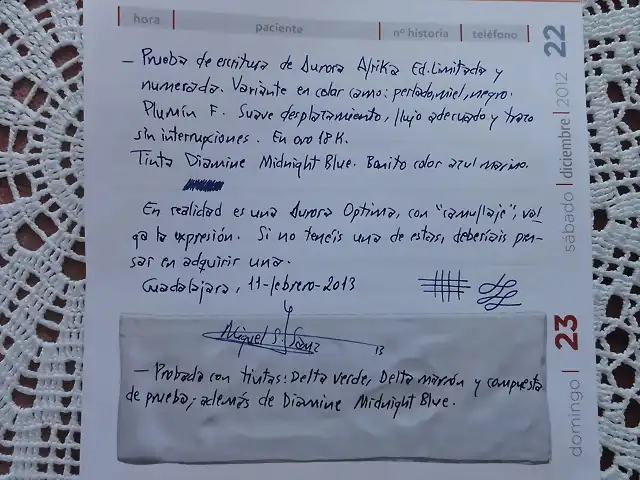 hora paciente nº historia teléfono
22
sábado | diciembre | 2012
– Prueba de escritura de Aurora Afrika Ed. Limitada y
numerada. Variante en color camo: perlado, miel, negro.
Plumín F. Suave desplazamiento, flujo adecuado y trazo
sin interrupciones. En oro 18 K.
Tinta Diamine Midnight Blue. Bonito color azul marino.
En realidad es una Aurora Optima, con "camuflaje", val
ga la expresión. Si no tenéis una de estas, deberíais pen-
sar en adquirir una.
Guadalajara, 11-febrero-2013
Miguel S. Sanz
13
23
domingo |
– Probada con tintas: Delta verde, Delta marrón y compuesta
de prueba; además de Diamine Midnight Blue.